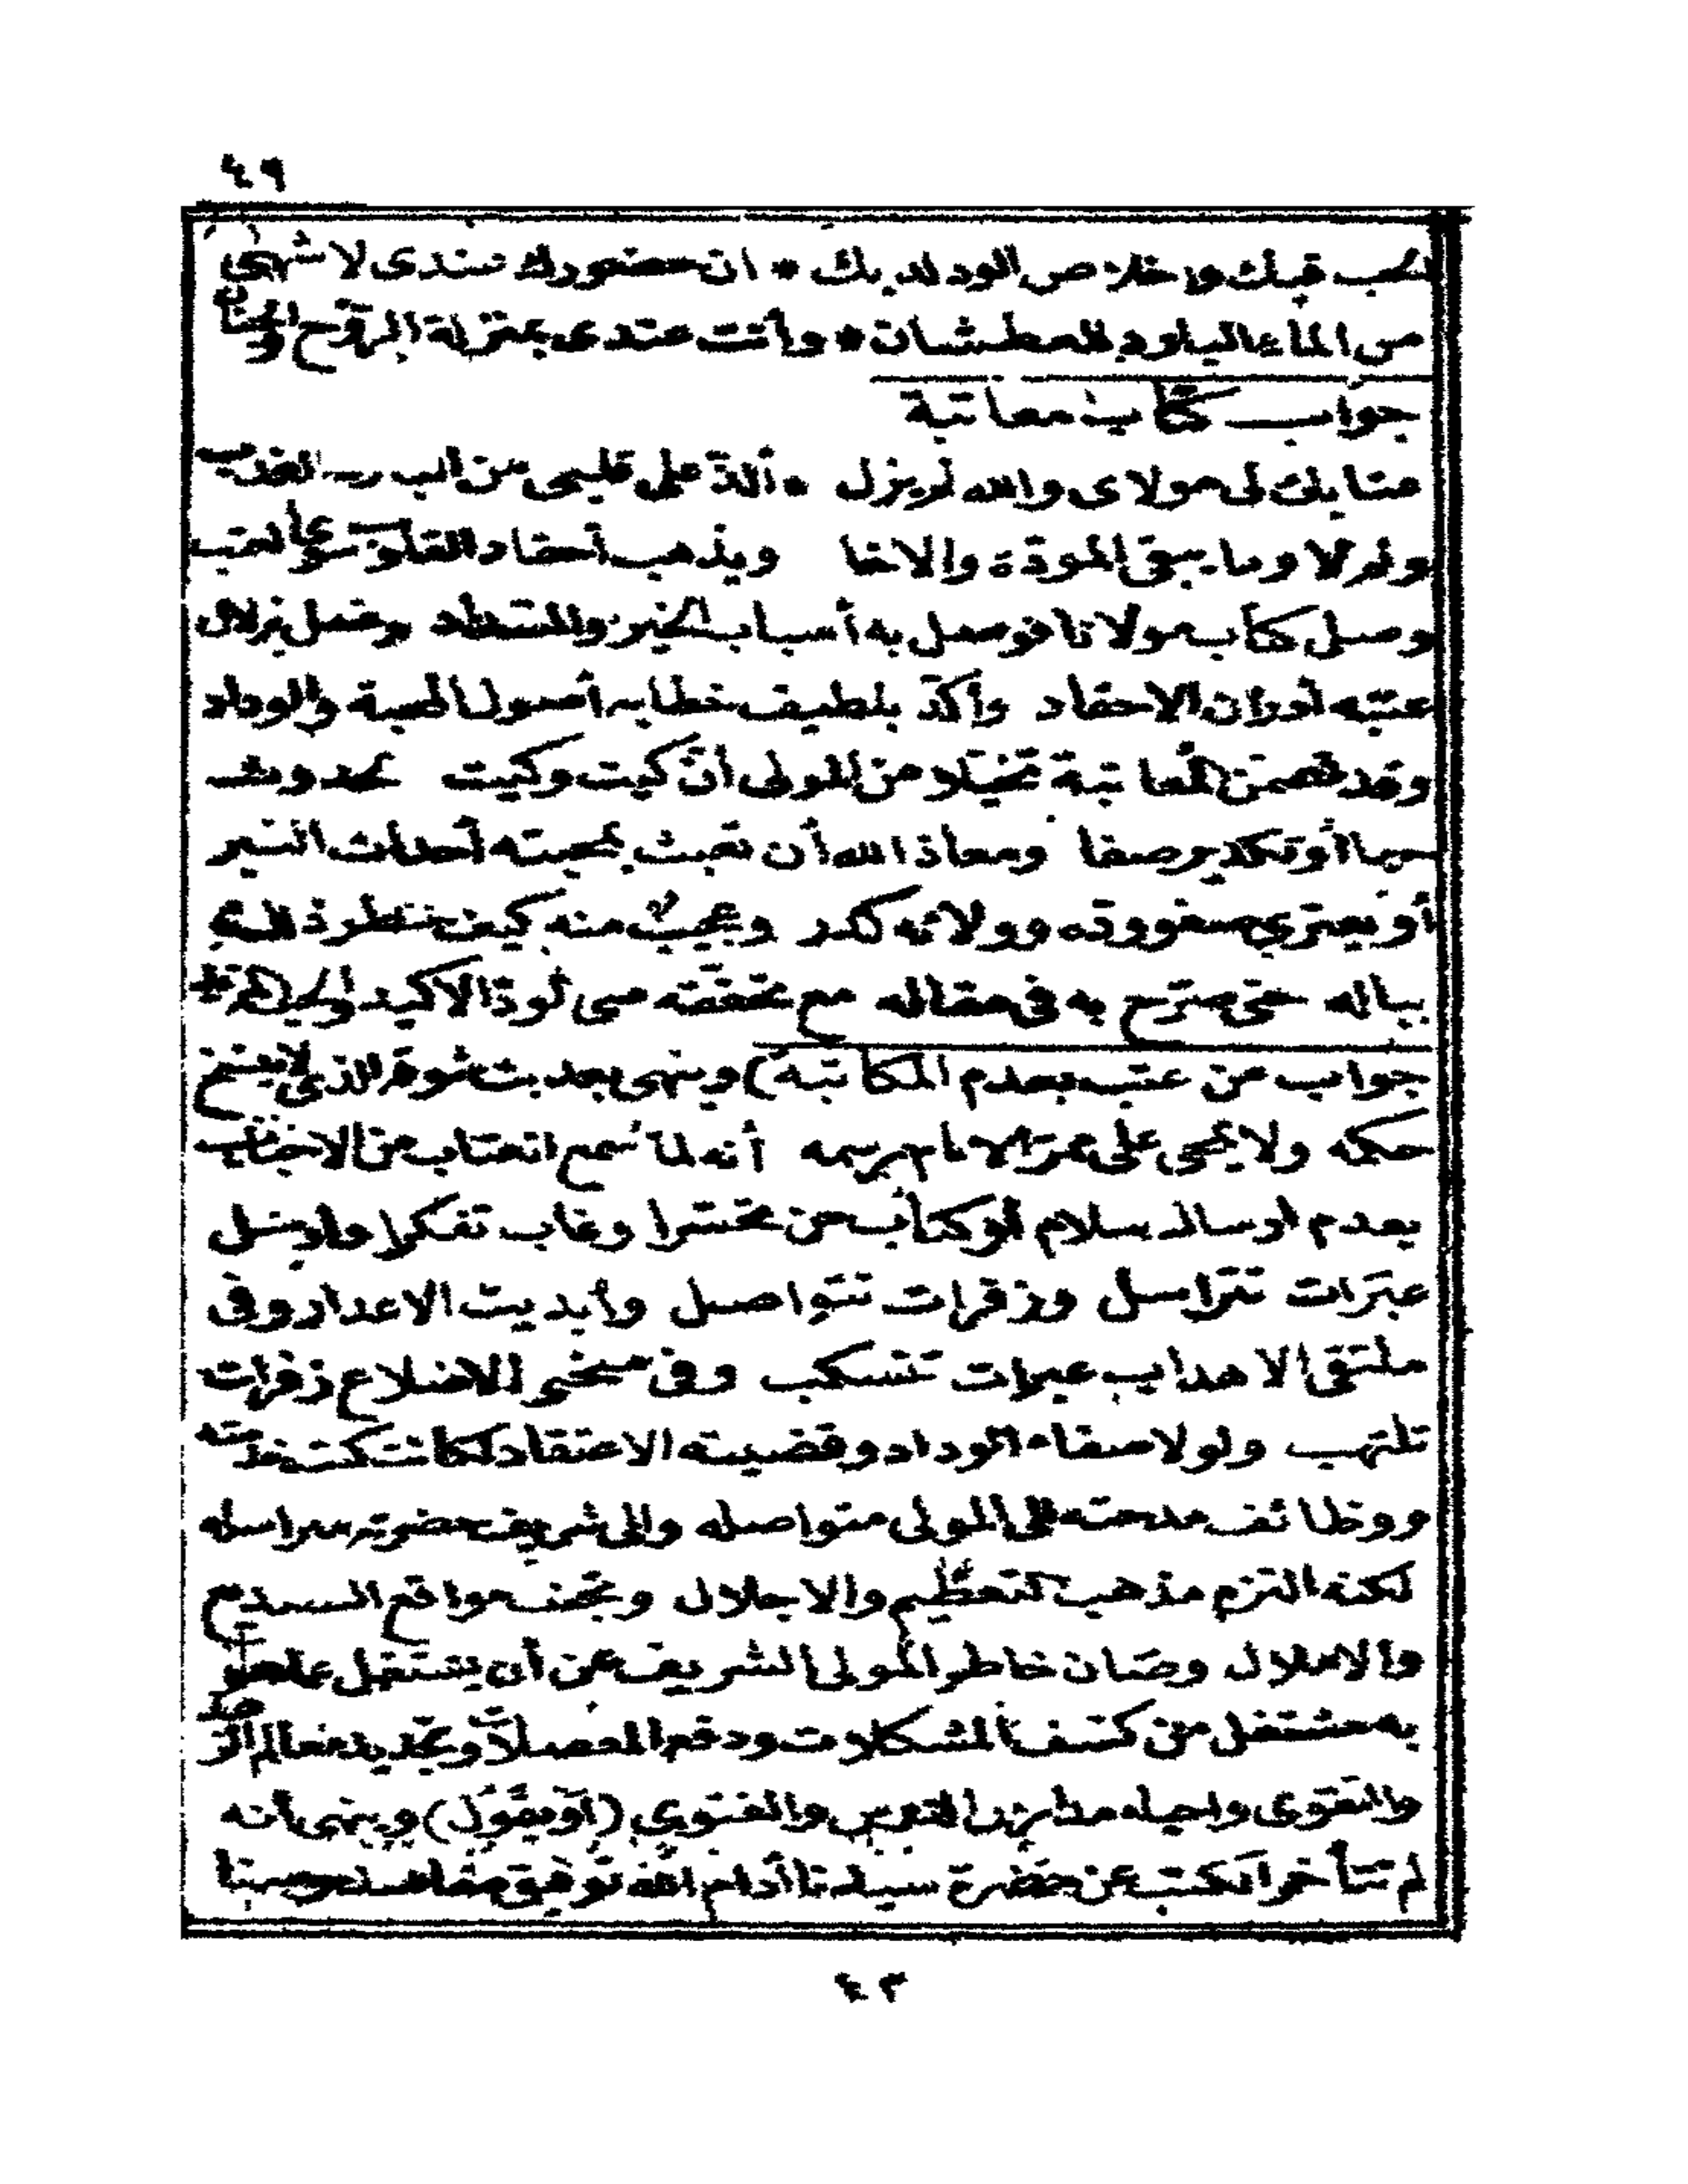 ٤٩
قبلك واخلاص الود لديك * ان حضورك عندى لا شهى
من الماء البارد للعطشان * وأنت عندى بمنزلة الروح والجنان
جواب كتاب معاتبة
عتابك لى مولاى والله لم يزل * ألذ على قلبى من البارد العذب
ولم لا وما يبقى المودة والاخا ويذهب أحقاد القلوب سوى العتب
وصل كتاب مولانا فوصل به أسباب الخير وغسل بزلال
عتبه أدران الاحقاد وأكد بلطيف خطابه أصول المحبة والوداد
وقد تضمن المعاتبة تخيلا من المولى أن كيت وكيت
أو تكدير صفا ومعاذ الله أن تعبث بمحبته أحداث
أو يعترى صفو وده وولائه كدر وعجيب منه كيف خطر ذلك
بباله حتى صرح به فى مقاله مع تحققه منى الاكيد
جواب عن عتب بعدم المكاتبة) وينهى بعد بث شوقه الذى لا ينسخ
حكمه ولا يمحى على مر الايام رسمه أنه لما سمع العتاب من الاحباب
بعدم ارسال سلام أو كتاب وغاب تفكرا وأرسل
عبرات تتراسل وزفرات تتواصل وأبديت الاعذار وفى
ملتقى الاهداب عبرات تنسكب وفى الاضلاع زفرات
تلتهب ولولا صفاء الوداد وقضيته الاعتقاد لكانت كتب خدمته
ووظائف مدحته الى المولى متواصله والى شريف حضرته مراسله
لكنه التزم مذهب التعظيم والاجلال وتجنب مواقع
والاملال وصان خاطر المولى الشريف عن أن يشتغل
به مشتغل من كشف المشكلات ودفع المعضلات وتجديد معالم
والتقوى واحياء والفتوى (أو يقول) وينهى أنه
لم تتأخر الكتب عن حضرة سيدنا أدام الله توفيق
٤٣